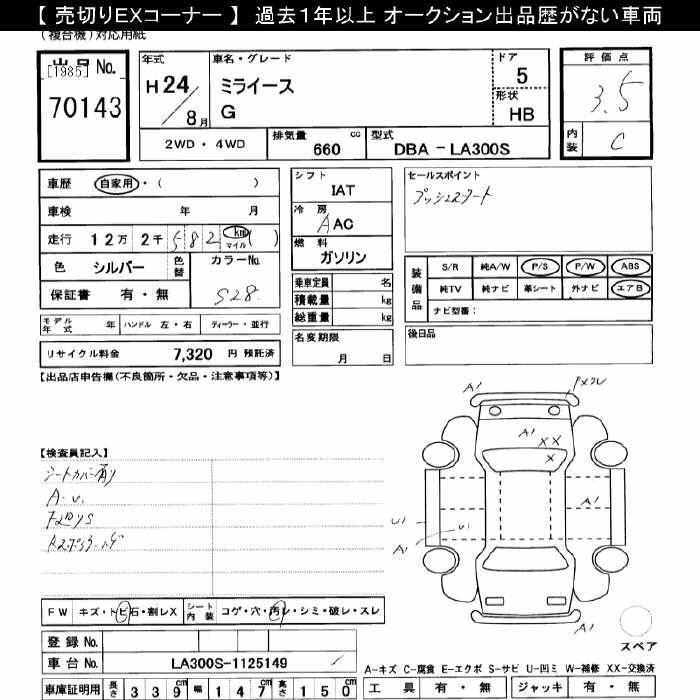 【 売切りEXコーナー 】 過去1年以上 オークション出品歴がない車両
(複合機)対応用紙
出品 No.
[1985]
70143
年式
H 24 / 8月
車名・グレード
ミライース
G
ドア
5
形状
HB
評価点
3.5
内装
C
2WD・4WD
排気量
660 cc
型式
DBA - LA300S
車歴 自家用・( )
車検 年 月
走行 12万 2千 582 km マイル ( )
色 シルバー 色替 カラーNo.
S28
保証書 有・無
シフト
IAT
冷房
AAC
燃料
ガソリン
乗車定員 名
積載量 kg
総重量 kg
セールスポイント
プッシュスタート
装備品
S/R 純A/W P/S P/W ABS
純TV 純ナビ 革シート 外ナビ エアB
ナビ型番:
モデル年式 年 ハンドル 左・右 ディーラー・並行
リサイクル料金 7,320 円 預託済
名変期限
月 日
後日品
【出品店申告欄(不良箇所・欠品・注意事項等)】
【検査員記入】
シートカバー有り
A-U.
A1
A1
XX
X
A1
U1
U1
A1
FW キズ・トビ石・割レX シート内装 コゲ・穴・汚レ・シミ・破レ・スレ
登録 No.
車台 No. LA300S-1125149
車庫証明用 長さ 339 cm 幅 147 cm 高さ 150 cm
スペア
A-キズ C-腐食 E-エクボ S-サビ U-凹ミ W-補修 XX-交換済
工具 有・無 ジャッキ 有・無